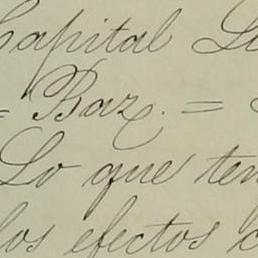 Capital
= Baz. =
Lo que
los efectos